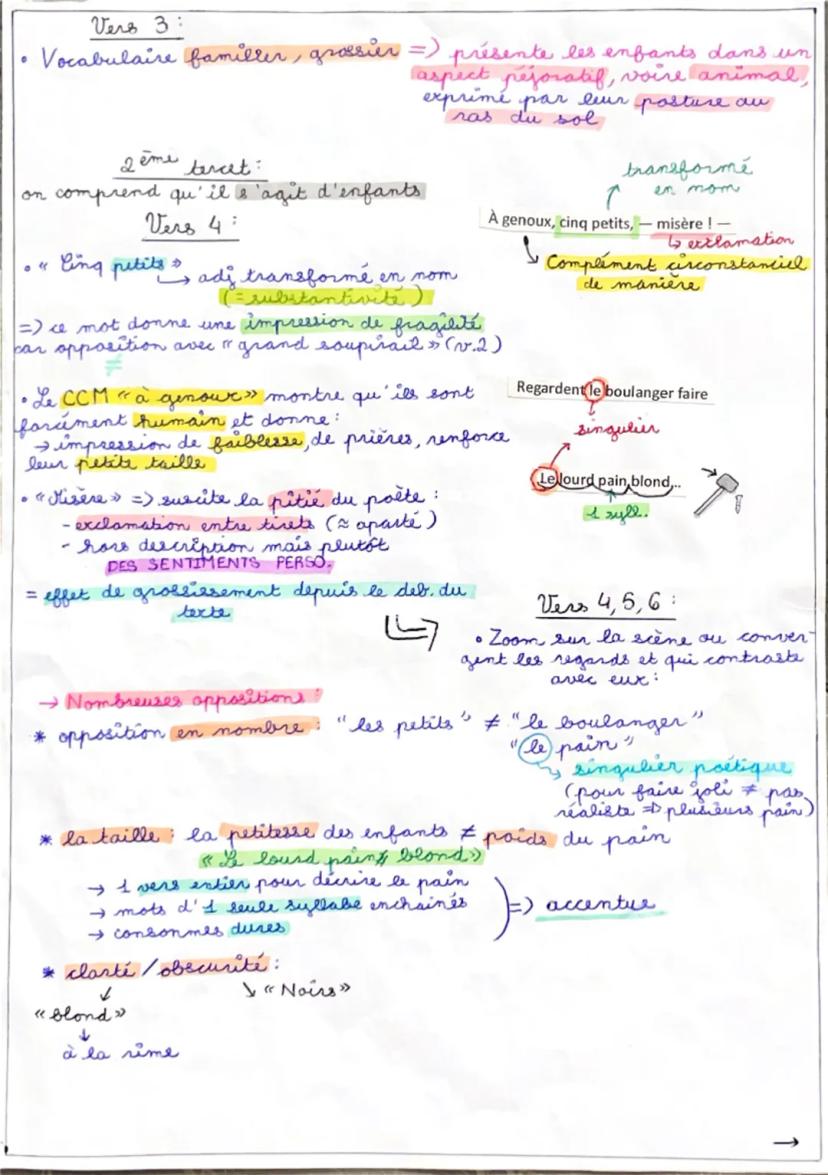 Vers 3 :
• Vocabulaire familier, grossier => présente les enfants dans un
aspect péjoratif, voire animal,
exprimé par leur posture au
ras du sol
2ème tercet :
on comprend qu'il s'agit d'enfants
Vers 4 :
transformé
en nom
À genoux, cinq petits, — misère ! —
↳ exclamation
Complément circonstanciel
de manière
• « Cinq petits »
↳ adj transformé en nom
(= substantivité)
=> ce mot donne une impression de fragilité
car opposition avec « grand soupirail » (v.2)
≠
• Le CCM « à genoux » montre qu'ils sont
forcément humain et donne :
→ impression de faiblesse, de prières, renforce
leur petite taille
Regardent le boulanger faire
singulier
Le lourd pain blond,..
1 syll.
• « Misère » => suscite la pitié du poète :
- exclamation entre tirets (≈ aparté)
- hors description mais plutôt
DES SENTIMENTS PERSO.
= effet de grossissement depuis le deb. du
texte
Vers 4, 5, 6 :
• Zoom sur la scène ou conver-
gent les regards et qui contraste
avec eux :
→ Nombreuses oppositions :
* opposition en nombre : "les petits" ≠ "le boulanger"
"le pain"
singulier poétique
(pour faire joli ≠ pas
réaliste => plusieurs pain)
* la taille : la petitesse des enfants ≠ poids du pain
« Le lourd pain blond »
→ 1 vers entier pour décrire le pain
→ mots d'1 seule syllabe enchaînés
→ consonnes dures
=> accentue
* clarté / obscurité :
↘ « Noirs »
« blond »
↓
à la rime
→